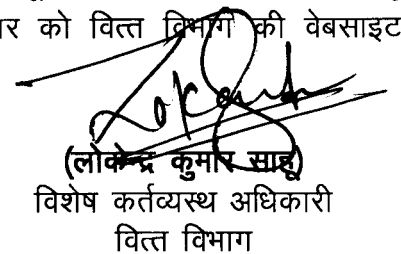 र को वित्त विभाग की वेबसाइट
(लोकेन्द्र कुमार साहू)
विशेष कर्तव्यस्थ अधिकारी
वित्त विभाग